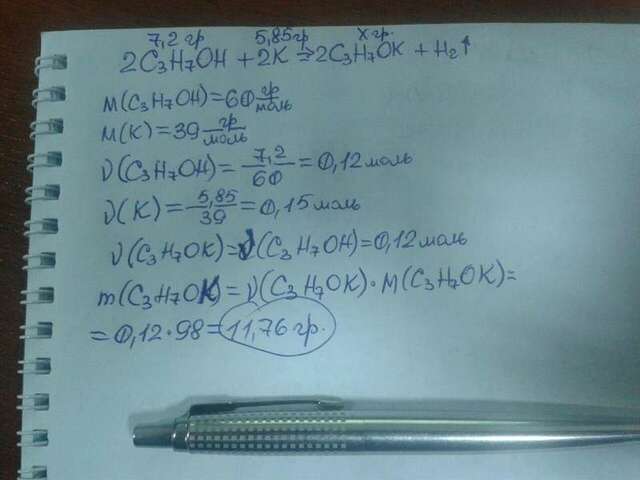 7,2 гр 5,85гр x гр.
2C₃H₇OH + 2K ⇒ 2C₃H₇OK + H₂↑
M(C₃H₇OH)=60 гр/моль
M(K)=39 гр/моль
ν(C₃H₇OH)= 7,2/60 =0,12моль
ν(K)= 5,85/39 =0,15моль
ν(C₃H₇OK)=ν(C₃H₇OH)=0,12моль
m(C₃H₇OK)=ν(C₃H₇OK)·M(C₃H₇OK)=
=0,12·98=11,76 гр.